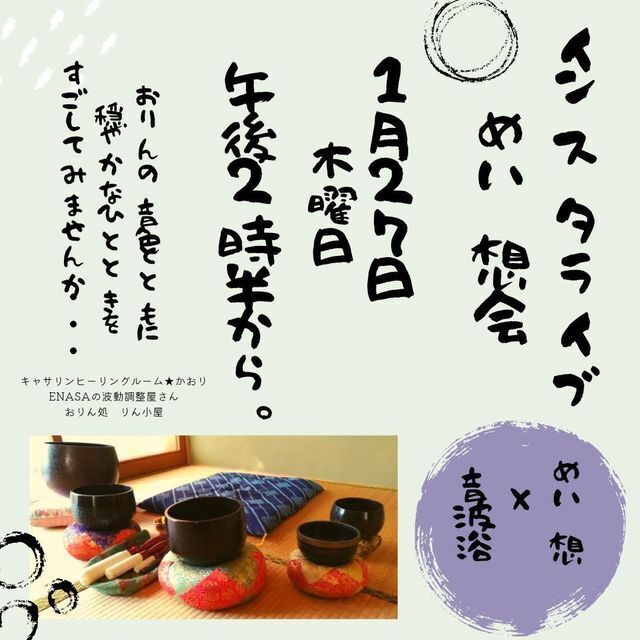 インスタライブ
めい想会
1月27日
木曜日
午後2時半から。
おりんの音色とともに
穏やかなひとときを
すごしてみませんか・・
キャサリンヒーリングルーム★かおり
ENASAの波動調整屋さん
おりん処　りん小屋
めい想
×
音波浴